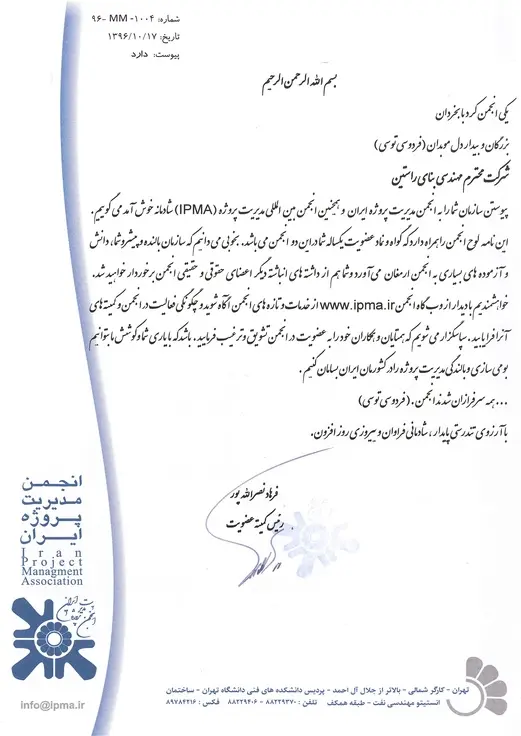 شماره: ۱۰۰۴- MM -۹۶
تاریخ: ۱۳۹۶/۱۰/۱۷
پیوست: دارد
بسم الله الرحمن الرحیم
یکی انجمن کرد با بخردان
بزرگان و بیدار دل موبدان (فردوسی توسی)
شرکت محترم مهندسی بنای راستین
پیوستن سازمان شما را به انجمن مدیریت پروژه ایران و همچنین انجمن بین المللی مدیریت پروژه (IPMA) شادمانه خوش آمد می گوییم.
این نامه لوح انجمن را همراه دارد که گواه و نماد عضویت یکساله شما در این دو انجمن می باشد. بخوبی می دانیم که سازمان بالنده و پیشرو شما، دانش
و آزموده های بسیاری به انجمن ارمغان می آورد و شما هم از داشته های انباشته دیگر اعضای حقوقی و حقیقی انجمن برخوردار خواهید شد.
خواهشمندیم با دیدار از وب گاه انجمن www.ipma.ir از خدمات و تازه های انجمن آگاه شوید و چگونگی فعالیت در انجمن و کمیته های
آنرا فرا یابید. سپاسگزار می شویم که همتایان و همکاران خود را به عضویت در انجمن تشویق و ترغیب فرمایید. باشد که با یاری شما و کوشش ما بتوانیم
بومی سازی و بالندگی مدیریت پروژه را در کشورمان ایران بسامان کنیم.
...همه سرفرازان شدند انجمن. (فردوسی توسی)
با آرزوی تندرستی پایدار، شادمانی فراوان و پیروزی روز افزون.
فرهاد نصرالله پور
رئیس کمیته عضویت
انجمن
مدیریت
پروژه
ایران
Iran
Project
Managment
Association
info@ipma.ir
تهران - کارگر شمالی - بالاتر از جلال آل احمد - پردیس دانشکده های فنی دانشگاه تهران - ساختمان
انستیتو مهندسی نفت - طبقه همکف تلفن: ۸۸۲۲۹۳۷۰ - ۸۸۲۲۹۴۰۶ فکس: ۸۹۷۸۴۲۱۶